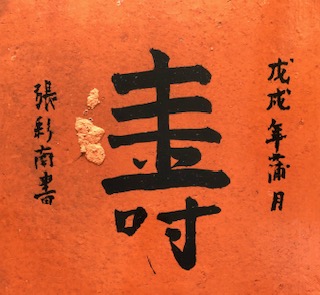 戊戌年蒲月
壽
張彩南書